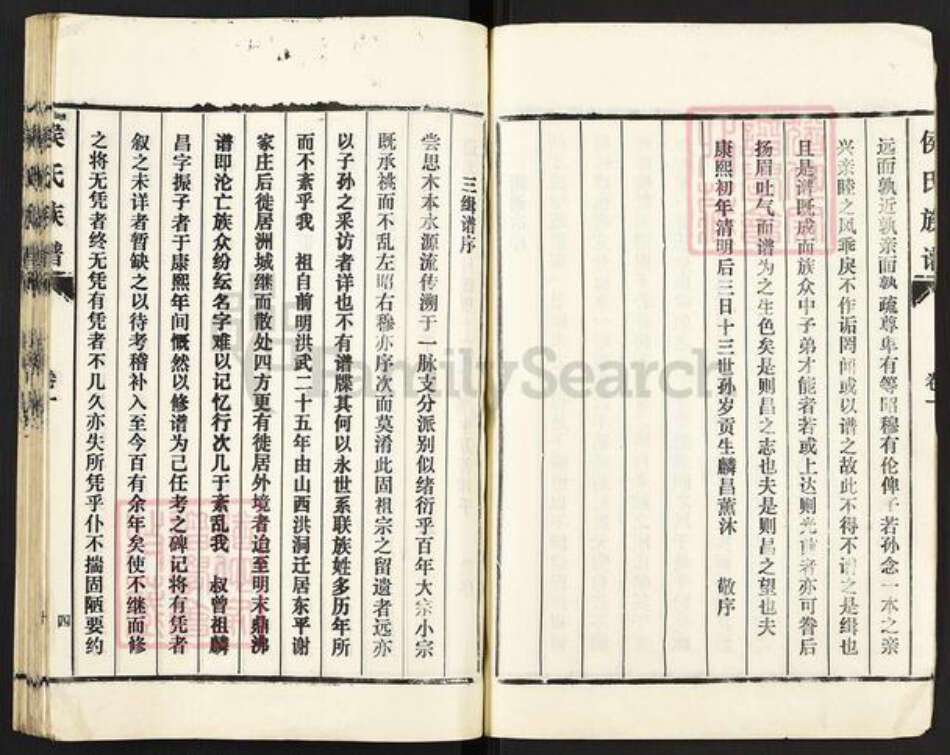 侯氏族谱
卷一
远而孰近孰亲而孰疏尊卑有等昭穆有伦俾子若孙念一本之亲
兴亲睦之风乖戾不作诟罔闻或以谱之故此不得不谱之是缉也
且是谱既成而族众中子弟才能者若或上达则光前者亦可誊后
扬眉吐气而谱为之生色矣是则昌之志也夫是则昌之望也夫
康熙初年清明后三日十三世孙岁贡生麟昌薰沐 敬序
三缉谱序
尝思木本水源流传溯于一脉支分派别似绪衍乎百年大宗小宗
既承祧而不乱左昭右穆亦序次而莫淆此固祖宗之留遗者远亦
以子孙之采访者详也不有谱牒其何以永世系联族姓多历年所
而不紊乎我 祖自前明洪武二十五年由山西洪洞迁居东平谢
家庄后徙居洲城继而散处四方更有徙居外境者迨至明末鼎沸
谱即沦亡族众纷纭名字难以记忆行次几于紊乱我 叔曾祖麟
昌字振子者于康熙年间慨然以修谱为己任考之碑记将有凭者
叙之未详者暂缺之以待考稽补入至今百有余年矣使不继而修
之将无凭者终无凭有凭者不几久亦失所凭乎仆不揣固陋要约
侯氏族谱
卷一
四
FamilySearch